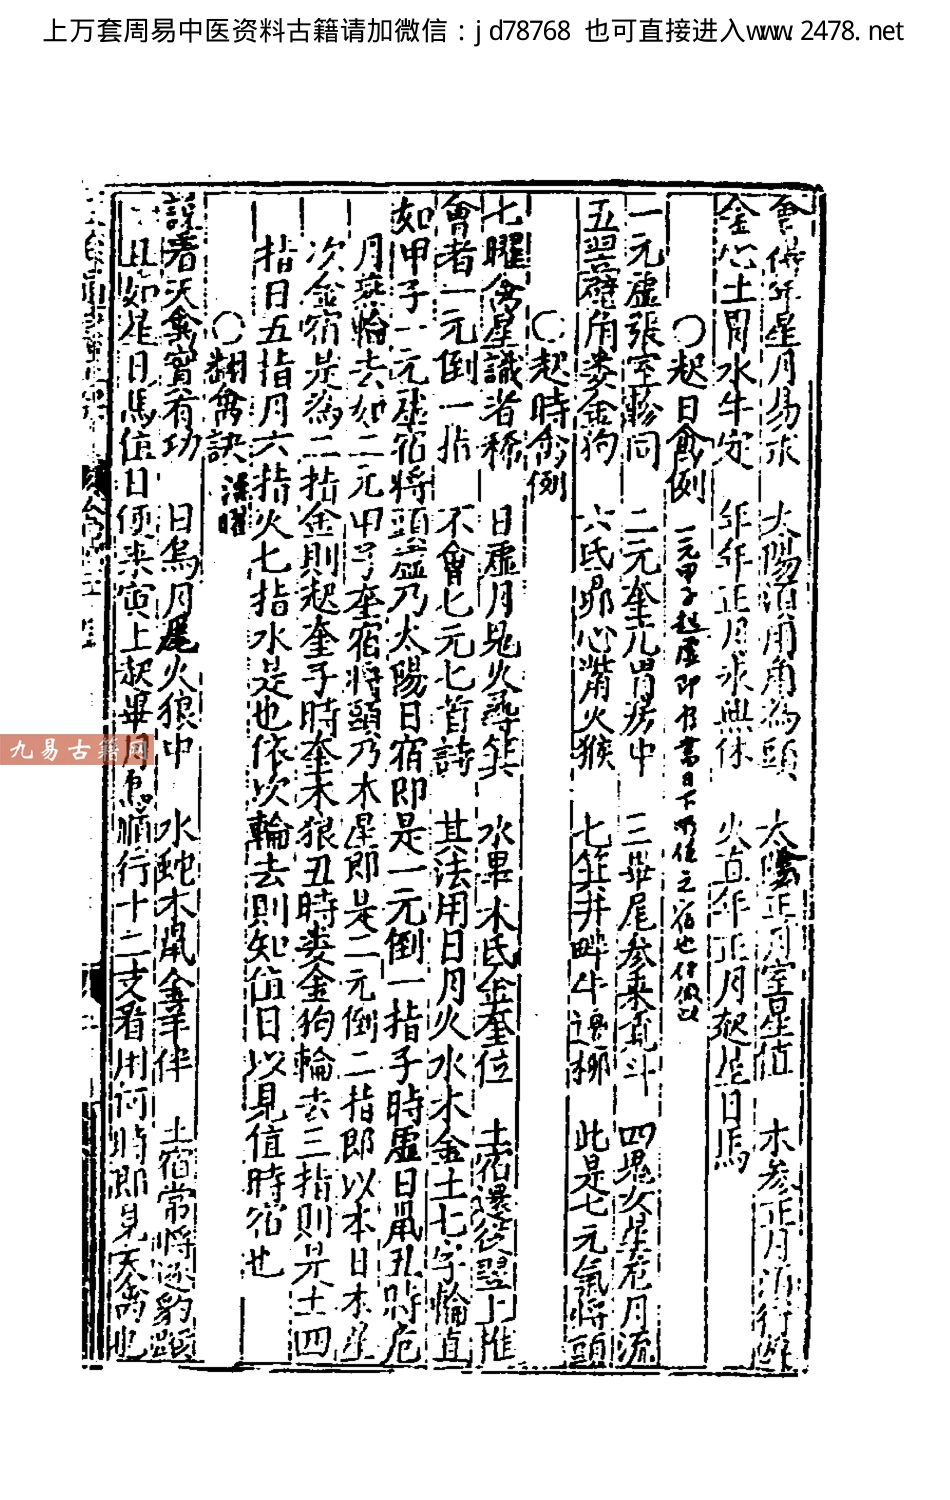 上万套周易中医资料古籍请加微信：jd78768 也可直接进入www.2478.net
會得年星月易求 太陽須用角為頭 太陰正月室星值 木参正月
金心土胃水牛定 年年正月求無休 火直年正月起星日馬
〇起日禽例 一元甲子起虛即
一元虛張室軫同 二元奎亢胃房中 三畢尾参来直斗 四鬼女星危月流
五翌壁角婁金狗 六氐昴心觜火猴 七箕井畔牛逢柳 此是七元氣將頭
〇起時禽例
七曜禽星識者稀 日虛月鬼火尋箕 水畢木氐金奎位 土宿還從翌上推
會者一元倒一指 不會七元七首詩 其法用日月火水木金土七字輪直
如甲子一元虛宿將頭虛乃太陽日宿即是一元倒一指子時虛日鼠丑時危
月燕輪去如二元甲子奎宿將頭乃木星即是二元倒二指即以本日木星
次金宿是為二指金則起奎子時奎木狼丑時婁金狗輪去三指則是土四
指日五指月六指火七指水是也依次輪去則知值日以見值時宿也
〇翻禽訣
説着天禽實有功 日馬月尾火狼中 水蚓木鼠金羊伴 土宿常將逐豹
丑如星日馬值日便来寅上起畢月烏順行十二支看用何時即見天禽也
九易古籍网